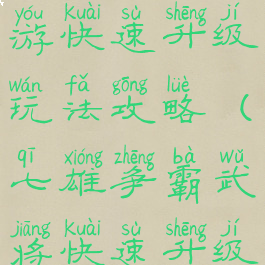 yóu kuài sù shēng jí
游快速升级
wán fǎ gōng lüè
玩法攻略（
qī xióng zhēng bà wǔ
七雄争霸武
jiāng kuài sù shēng jí
将快速升级